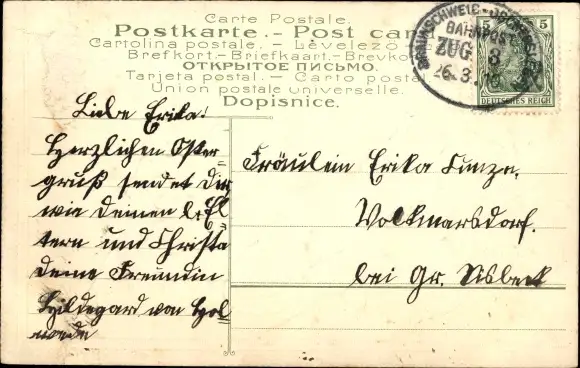 Carte Postale.
Postkarte. - Post card
Cartolina postale. - Levelező
Brefkort - Briefkaart. - Brevkort
ОТКРЫТОЕ ПИСЬМО.
Tarjeta postal. - Carto posta
Union postale universelle.
Dopisnice.
BRAUNSCHWEIG - OSCHERSLEBEN
BAHNPOST
ZUG. 8
26.3.
5 5
DEUTSCHES REICH
Liebe Erika!
Herzlichen Oster-
gruß sendet Dir
wie Deinen l. El-
tern und Christa
Deine Freundin
Hildegard von Hol-
wede
Fräulein Erika Kunze.
Volkmarsdorf.
bei Gr. Sisbeck